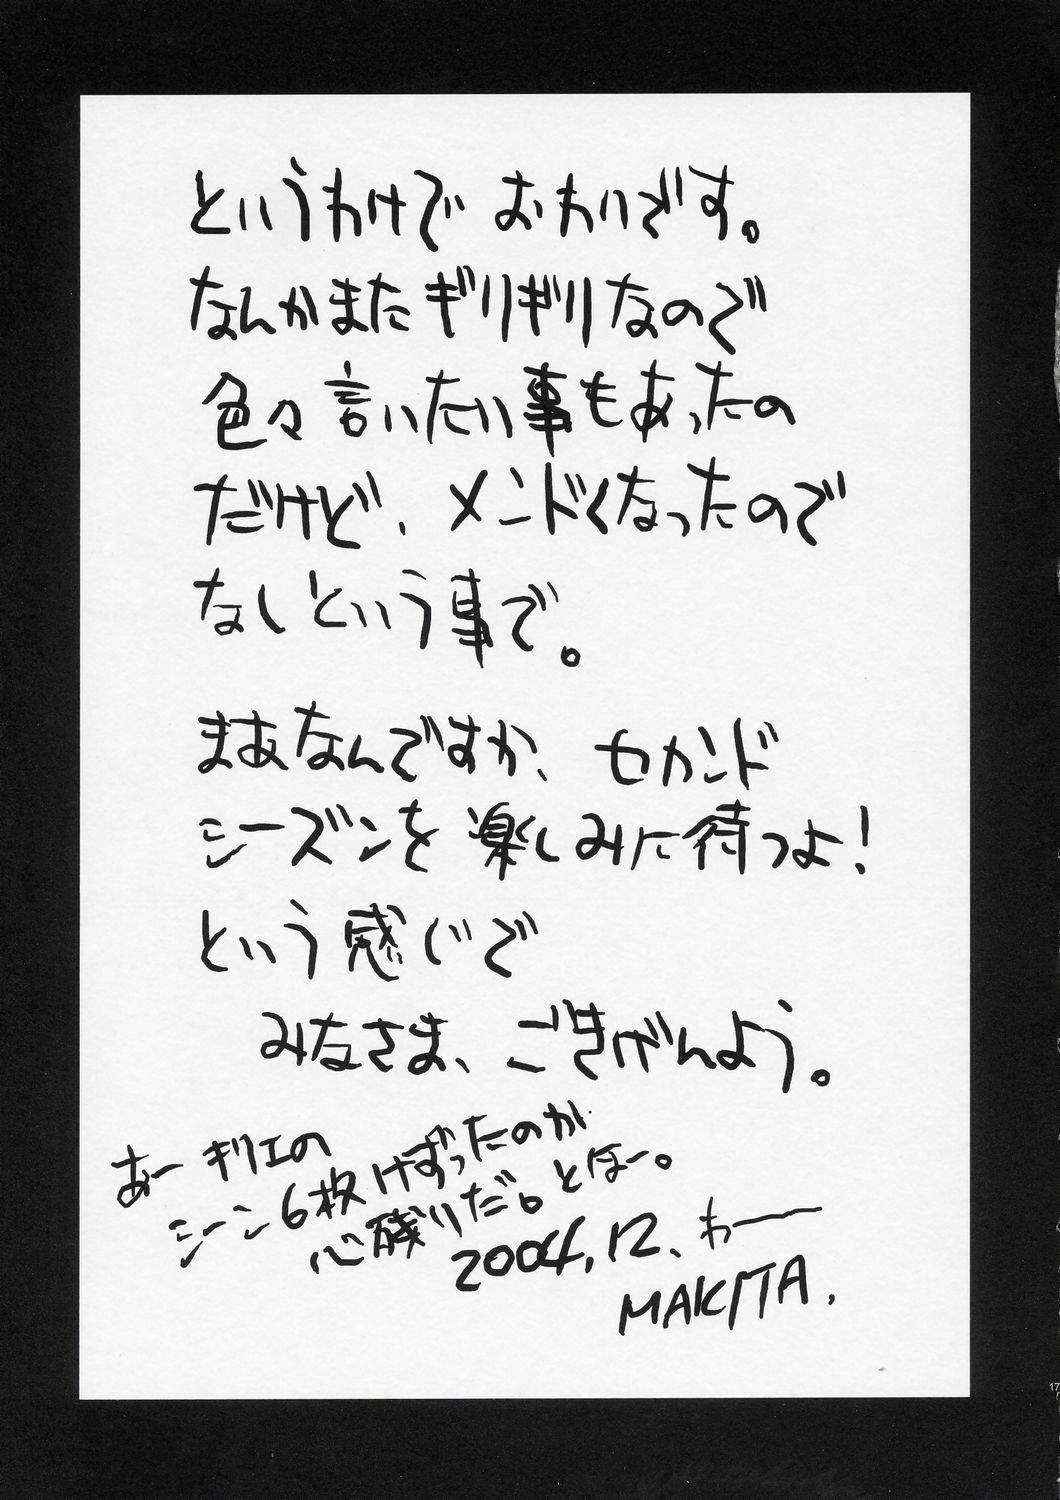 というわけで おわりです。
なんかまたギリギリなので
色々言いたい事もあったの
だけど、メンドくなったので
なしという事で。
まあなんですか、セカンド
シーズンを楽しみに待つよ!
という感じで
みなさま、ごきげんよう。
あー キリエの
シーン6枚けずったのが
心残りだ。とほー。
2004.12. わー
MAKITA.
17